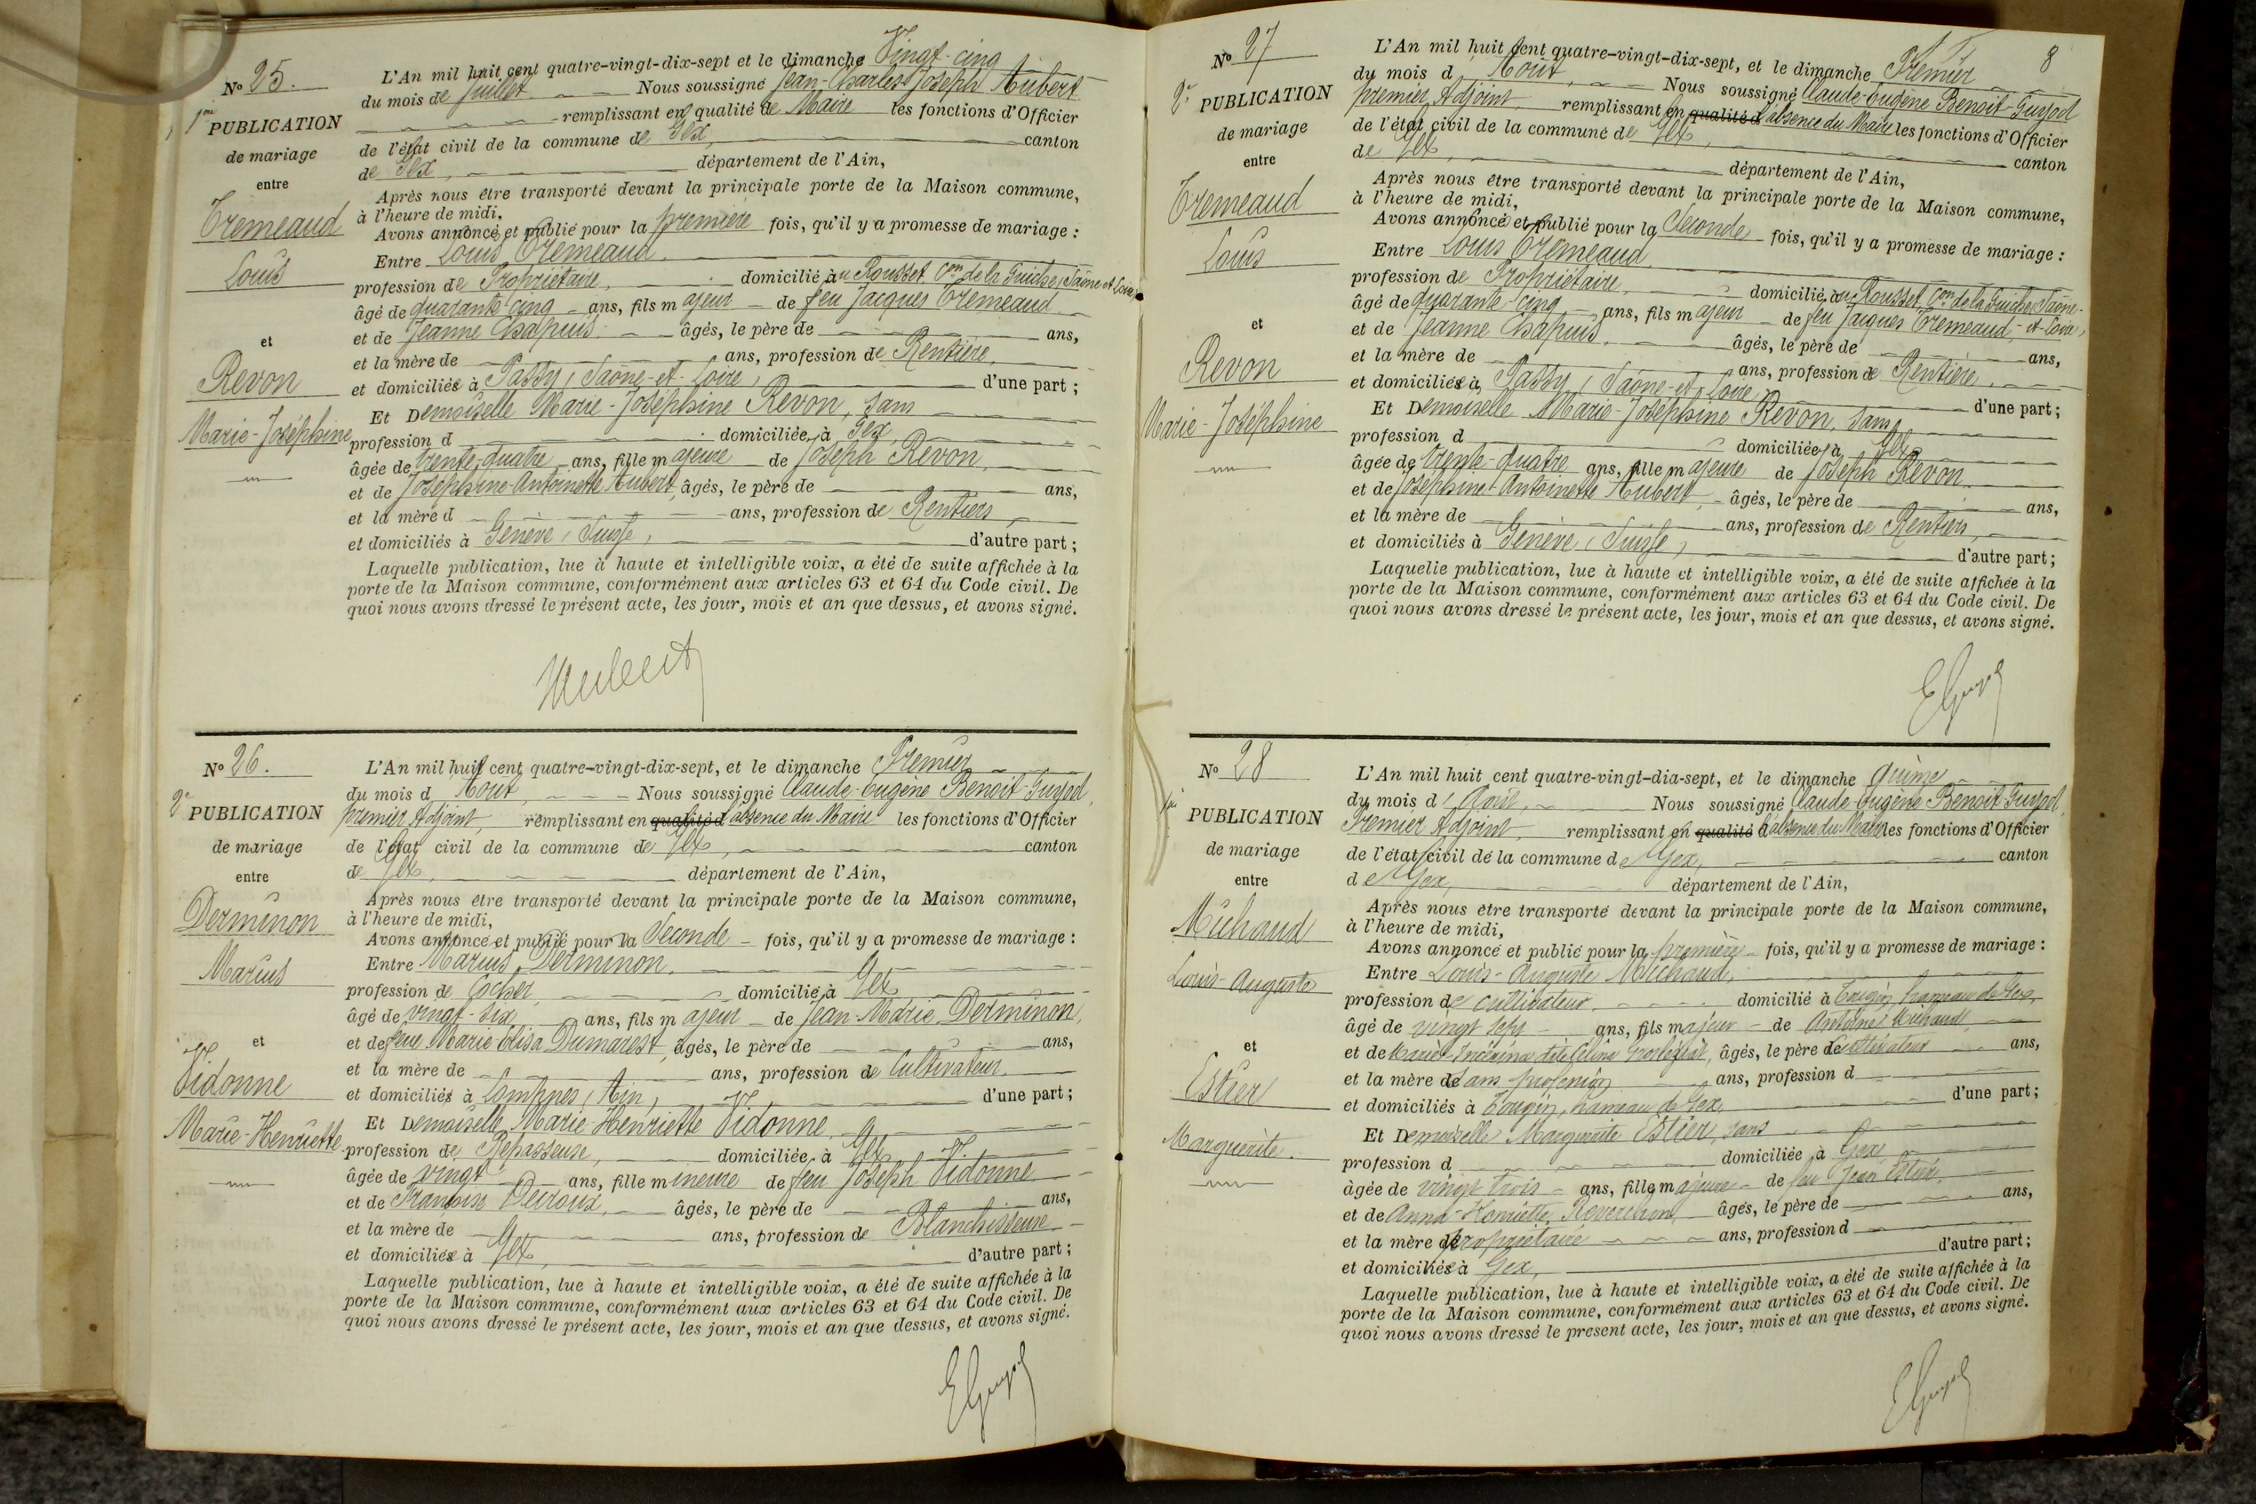 N° 25.
1re PUBLICATION
de mariage
entre
Tremeaud
Louis
et
Revon
Marie-Joséphine
L'An mil huit cent quatre-vingt-dix-sept et le dimanche Vingt-cinq
du mois de Juillet Nous soussigné Jean-Charles Joseph Hubert
remplissant en qualité de Maire les fonctions d'Officier
de l'état civil de la commune de Gex, canton
de Gex, département de l'Ain,
Après nous être transporté devant la principale porte de la Maison commune,
à l'heure de midi,
Avons annoncé et publié pour la première fois, qu'il y a promesse de mariage :
Entre Louis Tremeaud.
profession de Propriétaire, domicilié au Rousset, Con de la Guiche, Saône-et-Loire,
âgé de quarante-cinq ans, fils majeur de feu Jacques Tremeaud
et de Jeanne Chapuis âgés, le père de ans,
et la mère de ans, profession de Rentière
et domiciliés à Passy, Saône-et-Loire, d'une part ;
Et Demoiselle Marie-Joséphine Revon, sans
profession d domiciliée à Gex,
âgée de trente-quatre ans, fille majeure de Joseph Revon,
et de Joséphine-Antoinette Hubert, âgés, le père de ans,
et la mère d ans, profession de Rentiers,
et domiciliés à Genève, Suisse, d'autre part ;
Laquelle publication, lue à haute et intelligible voix, a été de suite affichée à la
porte de la Maison commune, conformément aux articles 63 et 64 du Code civil. De
quoi nous avons dressé le présent acte, les jour, mois et an que dessus, et avons signé.
Hubert
N° 26.
2e PUBLICATION
de mariage
entre
Derminon
Marius
et
Vidonne
Marie-Henriette
L'An mil huit cent quatre-vingt-dix-sept, et le dimanche Premier
du mois d'Août, Nous soussigné Claude-Eugène Benoit-Guyod,
premier Adjoint, remplissant en qualité d'absence du Maire les fonctions d'Officier
de l'état civil de la commune de Gex, canton
de Gex, département de l'Ain,
Après nous être transporté devant la principale porte de la Maison commune,
à l'heure de midi,
Avons annoncé et publié pour la Seconde fois, qu'il y a promesse de mariage :
Entre Marius Derminon.
profession de Cocher, domicilié à Gex
âgé de vingt-six ans, fils majeur de Jean-Marie Derminon,
et de feue Marie Elisa Dumarest, âgés, le père de ans,
et la mère de ans, profession de Cultivateur
et domiciliés à Lompnes, Ain, d'une part ;
Et Demoiselle Marie-Henriette Vidonne,
profession de Repasseuse, domiciliée à Gex
âgée de vingt ans, fille mineure de feu Joseph Vidonne
et de Françoise Deroux, âgés, le père de ans,
et la mère de ans, profession de Blanchisseuse
et domiciliés à Gex, d'autre part ;
Laquelle publication, lue à haute et intelligible voix, a été de suite affichée à la
porte de la Maison commune, conformément aux articles 63 et 64 du Code civil. De
quoi nous avons dressé le présent acte, les jour, mois et an que dessus, et avons signé.
EGuyod
8
N° 27
2e PUBLICATION
de mariage
entre
Tremeaud
Louis
et
Revon
Marie-Joséphine
L'An mil huit cent quatre-vingt-dix-sept, et le dimanche Premier
du mois d'Août, Nous soussigné Claude-Eugène Benoit-Guyod
premier Adjoint, remplissant en qualité d'absence du Maire les fonctions d'Officier
de l'état civil de la commune de Gex, canton
de Gex, département de l'Ain,
Après nous être transporté devant la principale porte de la Maison commune,
à l'heure de midi,
Avons annoncé et publié pour la Seconde fois, qu'il y a promesse de mariage :
Entre Louis Tremeaud
profession de Propriétaire, domicilié au Rousset, Con de la Guiche, Saône-
âgé de quarante-cinq ans, fils majeur de feu Jacques Tremeaud, -et-Loire,
et de Jeanne Chapuis, âgés, le père de ans,
et la mère de ans, profession de Rentière,
et domiciliés à Passy, Saône-et-Loire, d'une part ;
Et Demoiselle Marie-Joséphine Revon, sans
profession d domiciliée à Gex
âgée de trente-quatre ans, fille majeure de Joseph Revon
et de Joséphine-Antoinette Hubert, âgés, le père de ans,
et la mère de ans, profession de Rentiers,
et domiciliés à Genève, Suisse, d'autre part ;
Laquelle publication, lue à haute et intelligible voix, a été de suite affichée à la
porte de la Maison commune, conformément aux articles 63 et 64 du Code civil. De
quoi nous avons dressé le présent acte, les jour, mois et an que dessus, et avons signé.
EGuyod
N° 28
1re PUBLICATION
de mariage
entre
Michaud
Louis-Auguste
et
Estier
Marguerite.
L'An mil huit cent quatre-vingt-dia-sept, et le dimanche quinze
du mois d'Août, Nous soussigné Claude-Eugène Benoit-Guyod,
Premier Adjoint, remplissant en qualité d'absence du Maire les fonctions d'Officier
de l'état civil de la commune de Gex, canton
de Gex, département de l'Ain,
Après nous être transporté devant la principale porte de la Maison commune,
à l'heure de midi,
Avons annoncé et publié pour la première fois, qu'il y a promesse de mariage :
Entre Louis-Auguste Michaud,
profession de cultivateur domicilié à Tougin, hameau de Gex,
âgé de vingt sept ans, fils majeur de Antoine Michaud,
et de Marie dite Céline âgés, le père de Cultivateur ans,
et la mère de sans profession ans, profession d
et domiciliés à Tougin, hameau de Gex, d'une part ;
Et Demoiselle Marguerite Estier, sans
profession d domiciliée à Gex
âgée de vingt trois ans, fille majeure de feu Jean Estier,
et de Anna-Henriette Reverchon, âgés, le père de ans,
et la mère de propriétaire ans, profession d
et domiciliés à Gex, d'autre part ;
Laquelle publication, lue à haute et intelligible voix, a été de suite affichée à la
porte de la Maison commune, conformément aux articles 63 et 64 du Code civil. De
quoi nous avons dressé le présent acte, les jour, mois et an que dessus, et avons signé.
EGuyod